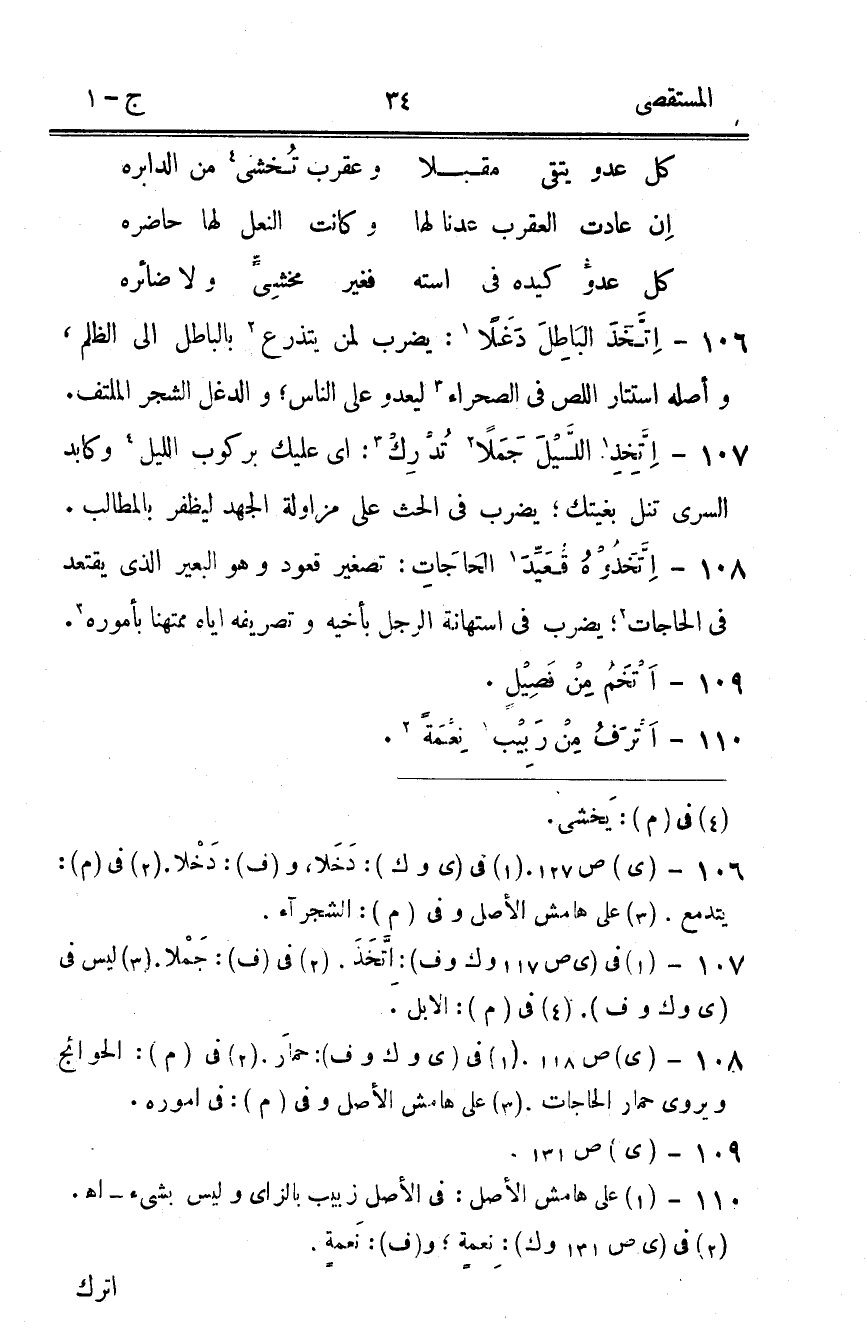 المستقصى ٣٤ ج – ١
كل عدو يتقى مقبـــلا و عقرب تُخشى٤ من الدابره
إن عادت العقرب عدنا لها و كانت النعل لها حاضره
كل عدوٍّ كيده فى استه فغير مخشيٍّ و لا ضائره
١٠٦ – اِتَّخَذَ البَاطِلَ دَغَلًا١ : يضرب لمن يتذرع٢ بالباطل الى الظلم ،
و أصله استتار اللص فى الصحراء٣ ليعدو على الناس؛ و الدغل الشجر الملتف.
١٠٧ – اِتَّخِذِ١ اللَّيْلَ جَمَلًا٢ تُدْرِكْ٣: اى عليك بركوب الليل٤ وكابد
السرى تنل بغيتك؛ يضرب فى الحث على مزاولة الجهد ليظفر بالمطالب .
١٠٨ – اِتَّخَذُوْهُ قُعَيِّدَ١ الحَاجَاتِ : تصغير قعود و هو البعير الذى يقتعد
فى الحاجات٢؛ يضرب فى استهانة الرجل بأخيه و تصريفه اياه ممتهنا بأموره٣.
١٠٩ – اَتْخَمُ مِنْ فَصِيْلٍ .
١١٠ – اَتْرَفُ مِنْ رَبِيْبِ١ نِعْمَةً٢ .
(٤) فى (م) : يَخشى.
١٠٦ – (ى) ص ١٢٧. (١) فى (ى و ك) : دَخَلا، و (ف): دَخْلا. (٢) فى (م):
يتدمع . (٣) على هامش الأصل و فى (م) : الشجرآء .
١٠٧ – (١) فى (ى ص ١١٧ وك وف): اِتَّخَذَ . (٢) فى (ف): جَمْلا. (٣) ليس فى
(ى وك و ف). (٤) فى (م) : الابل .
١٠٨ – (ى) ص ١١٨ . (١) فى (ى و ك و ف): حمارَ . (٢) فى (م) : الحوائج
و يروى حمار الحاجات . (٣) على هامش الأصل و فى (م) : فى اموره .
١٠٩ – (ى) ص ١٣١ .
١١٠ – (١) على هامش الأصل : فى الأصل زبيب بالزاى و ليس بشىء ــ اه .
(٢) فى (ى ص ١٣١ وك): نِعمةٍ ؛ و(ف): نَعمةٍ .
اترك